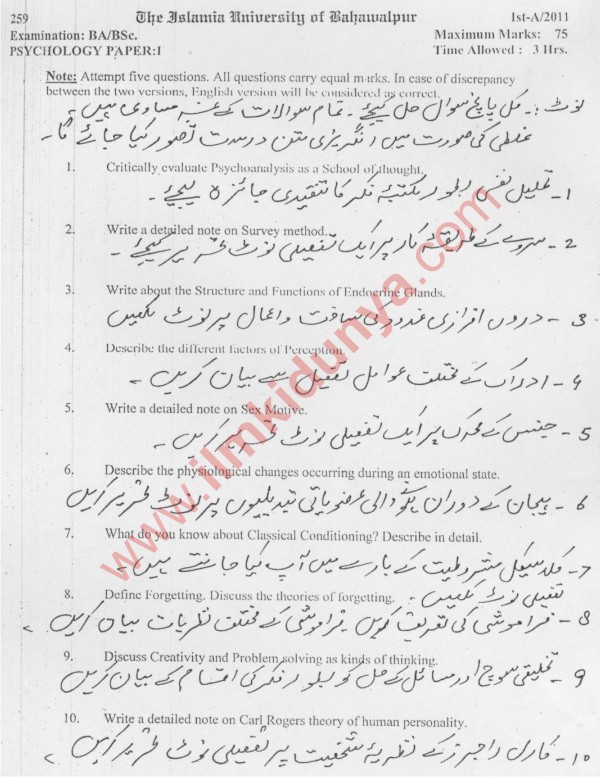 259 The Islamia University of Bahawalpur Ist-A/2011
Examination: BA/BSc. Maximum Marks: 75
PSYCHOLOGY PAPER:I Time Allowed : 3 Hrs.
Note: Attempt five questions. All questions carry equal marks. In case of discrepancy
between the two versions, English version will be considered as correct.
نوٹ :۔ کل پانچ سوال حل کیجیے ۔ تمام سوالات کے نمبر مساوی ہیں ۔
غلطی کی صورت میں انگریزی متن درست تصور کیا جائے گا ۔
1. Critically evaluate Psychoanalysis as a School of thought.
1- تحلیل نفسی بطور مکتبۂ فکر کا تنقیدی جائزہ لیجیے ۔
2. Write a detailed note on Survey method.
2- سروے کے طریقۂ کار پر ایک تفصیلی نوٹ تحریر کیجیے ۔
3. Write about the Structure and Functions of Endocrine Glands.
3- دروں افرازی غدود کی ساخت و اعمال پر نوٹ لکھیں
4. Describe the different factors of Perception.
4- ادراک کے مختلف عوامل تفصیل سے بیان کریں ۔
5. Write a detailed note on Sex Motive.
5- جنس کے محرک پر ایک تفصیلی نوٹ تحریر کریں ۔
6. Describe the physiological changes occurring during an emotional state.
6- ہیجان کے دوران ہونے والی عضویاتی تبدیلیوں پر نوٹ تحریر کریں
7. What do you know about Classical Conditioning? Describe in detail.
7- کلاسیکل مشروطیت کے بارے میں آپ کیا جانتے ہیں ۔
تفصیلی نوٹ لکھیں ۔
8. Define Forgetting. Discuss the theories of forgetting.
8- فراموشی کی تعریف کریں ۔ فراموشی کے مختلف نظریات بیان کریں ۔
9. Discuss Creativity and Problem solving as kinds of thinking.
9- تخلیقی سوچ اور مسائل کے حل کو بطور فکر کی اقسام کے بیان کریں
10. Write a detailed note on Carl Rogers theory of human personality.
10- کارل راجرز کے نظریۂ شخصیت پر تفصیلی نوٹ تحریر کریں ۔
www.ilmkidunya.com